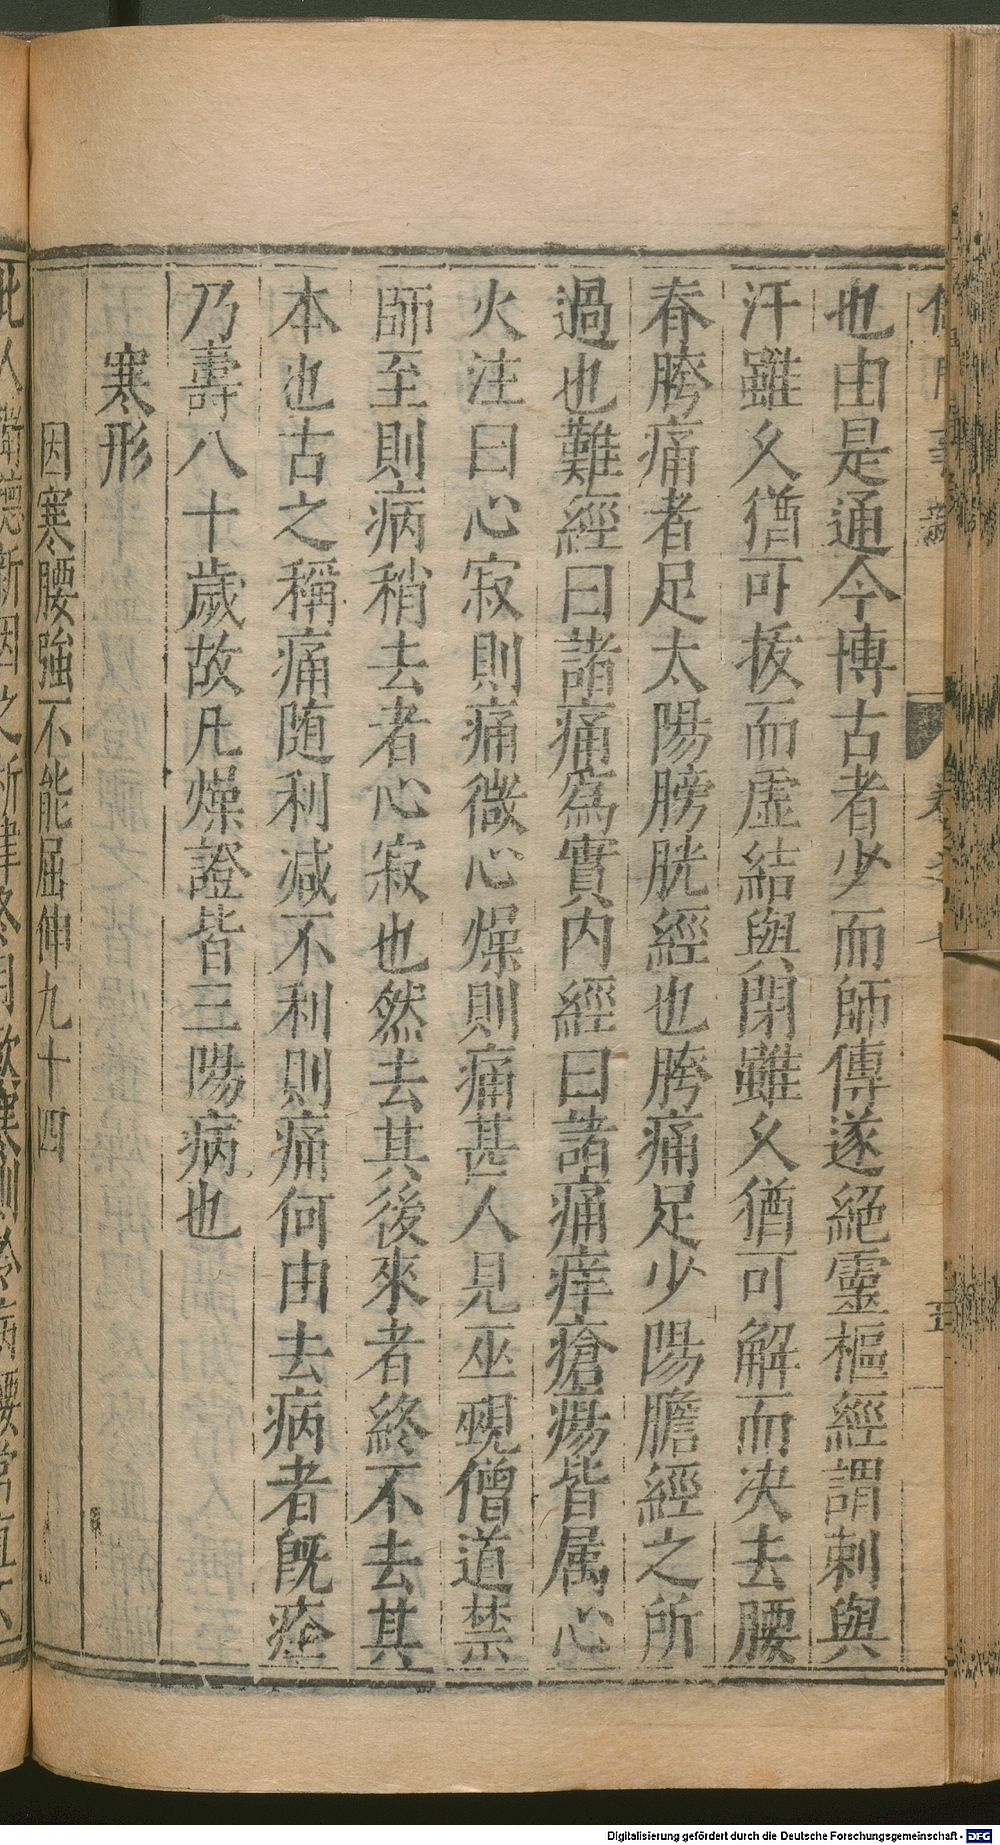 也由是通今博古者少而師傳遂絕靈樞經謂刺與
汗雖久猶可拔而虛結與閉雖久猶可解而决去腰
春胯痛者足太陽膀胱經也胯痛足少陽膽經之所
過也難經曰諸痛為實内經曰諸痛痒瘡瘍皆属心
火注曰心寂則痛微心燥則痛甚人見巫覡僧道禁
師至則病稍去者心寂也然去其後來者終不去其
本也古之稱痛随利减不利則痛何由去病者旣痊
乃壽八十歲故凡燥證皆三陽病也
寒形
因寒腰強不能屈伸九十四
Digitalisierung gefördert durch die Deutsche Forschungsgemeinschaft - DFG